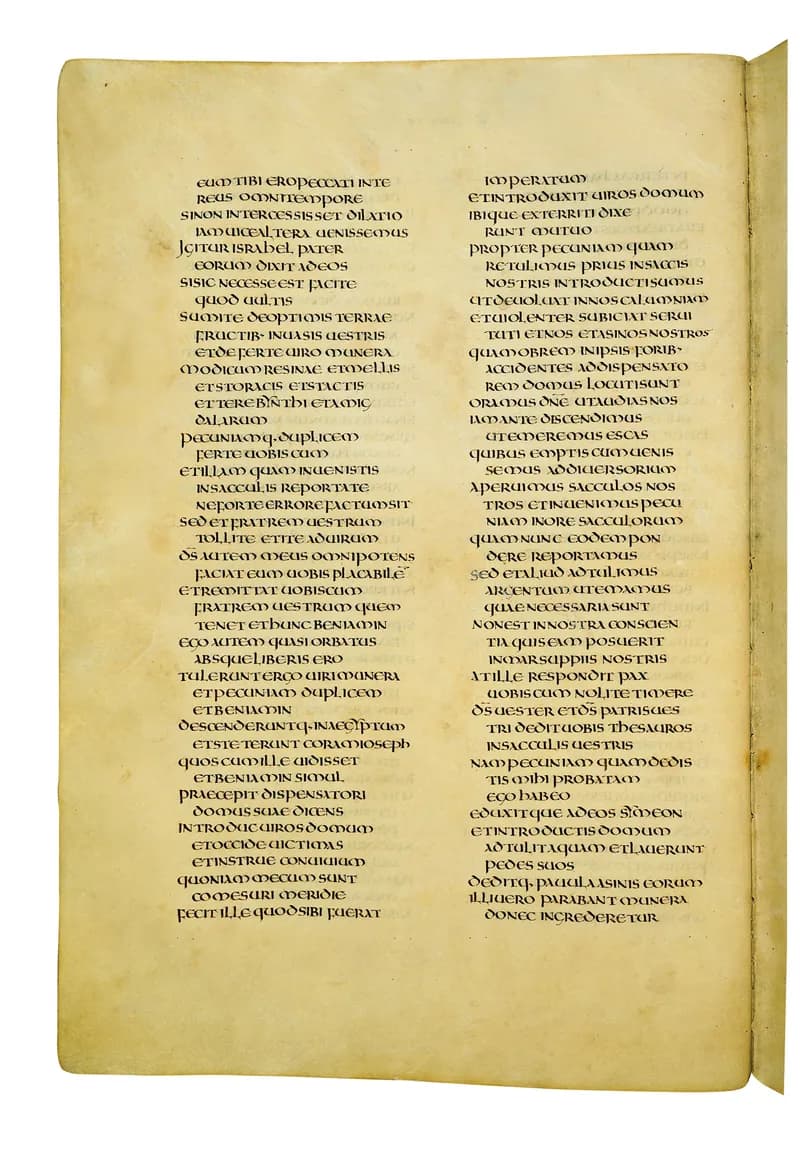 eum tibi ero peccati inte
reus omni tempore
si non intercessisset dilatio
iam vice altera venissemus
Igitur israhel pater
eorum dixit ad eos
si sic necesse est facite
quod vultis
sumite de optimis terrae
fructib· in vasis vestris
et deferte viro munera
modicum resinae et mellis
et storacis et stactis
et terebynthi et amig
dalarum
pecuniamq· duplicem
ferte vobiscum
et illam quam invenistis
in sacculis reportate
ne forte errore factum sit
sed et fratrem vestrum
tollite et ite ad virum
d̄s autem meus omnipotens
faciat eum vobis placabilē
et remittat vobiscum
fratrem vestrum quem
tenet et hunc beniamin
ego autem quasi orbatus
absque liberis ero
tulerunt ergo viri munera
et pecuniam duplicem
et beniamin
descenderuntq· in aegyptum
et steterunt coram ioseph
quos cum ille vidisset
et beniamin simul
praecepit dispensatori
domus suae dicens
introduc viros domum
et occide victimas
et instrue convivium
quoniam mecum sunt
comesuri meridie
fecit ille quod sibi fuerat
imperatum
et introduxit viros domum
ibique exterriti dixe
runt mutuo
propter pecuniam quam
retulimus prius in saccis
nostris introducti sumus
ut devolvat in nos calumniam
et violenter subiciat servi
tuti et nos et asinos nostros
quam ob rem in ipsis forib·
accidentes ad dispensato
rem domus locuti sunt
oramus dn̄e ut audias nos
iam ante discendimus
ut emeremus escas
quibus emptis cum venis
semus ad diversorium
aperuimus sacculos nos
tros et invenimus pecu
niam in ore sacculorum
quam nunc eodem pon
dere reportamus
sed et aliud adtulimus
argentum ut emamus
quae necessaria sunt
non est in nostra conscien
tia quis eam posuerit
in marsuppiis nostris
at ille respondit pax
vobiscum nolite timere
d̄s vester et d̄s patris ves
tri dedit vobis thesauros
in sacculis vestris
nam pecuniam quam dedis
tis mihi probatam
ego habeo
eduxitque ad eos symeon
et introductis domum
adtulit aquam et laverunt
pedes suos
deditq· pabula asinis eorum
illi vero parabant munera
donec ingrederetur